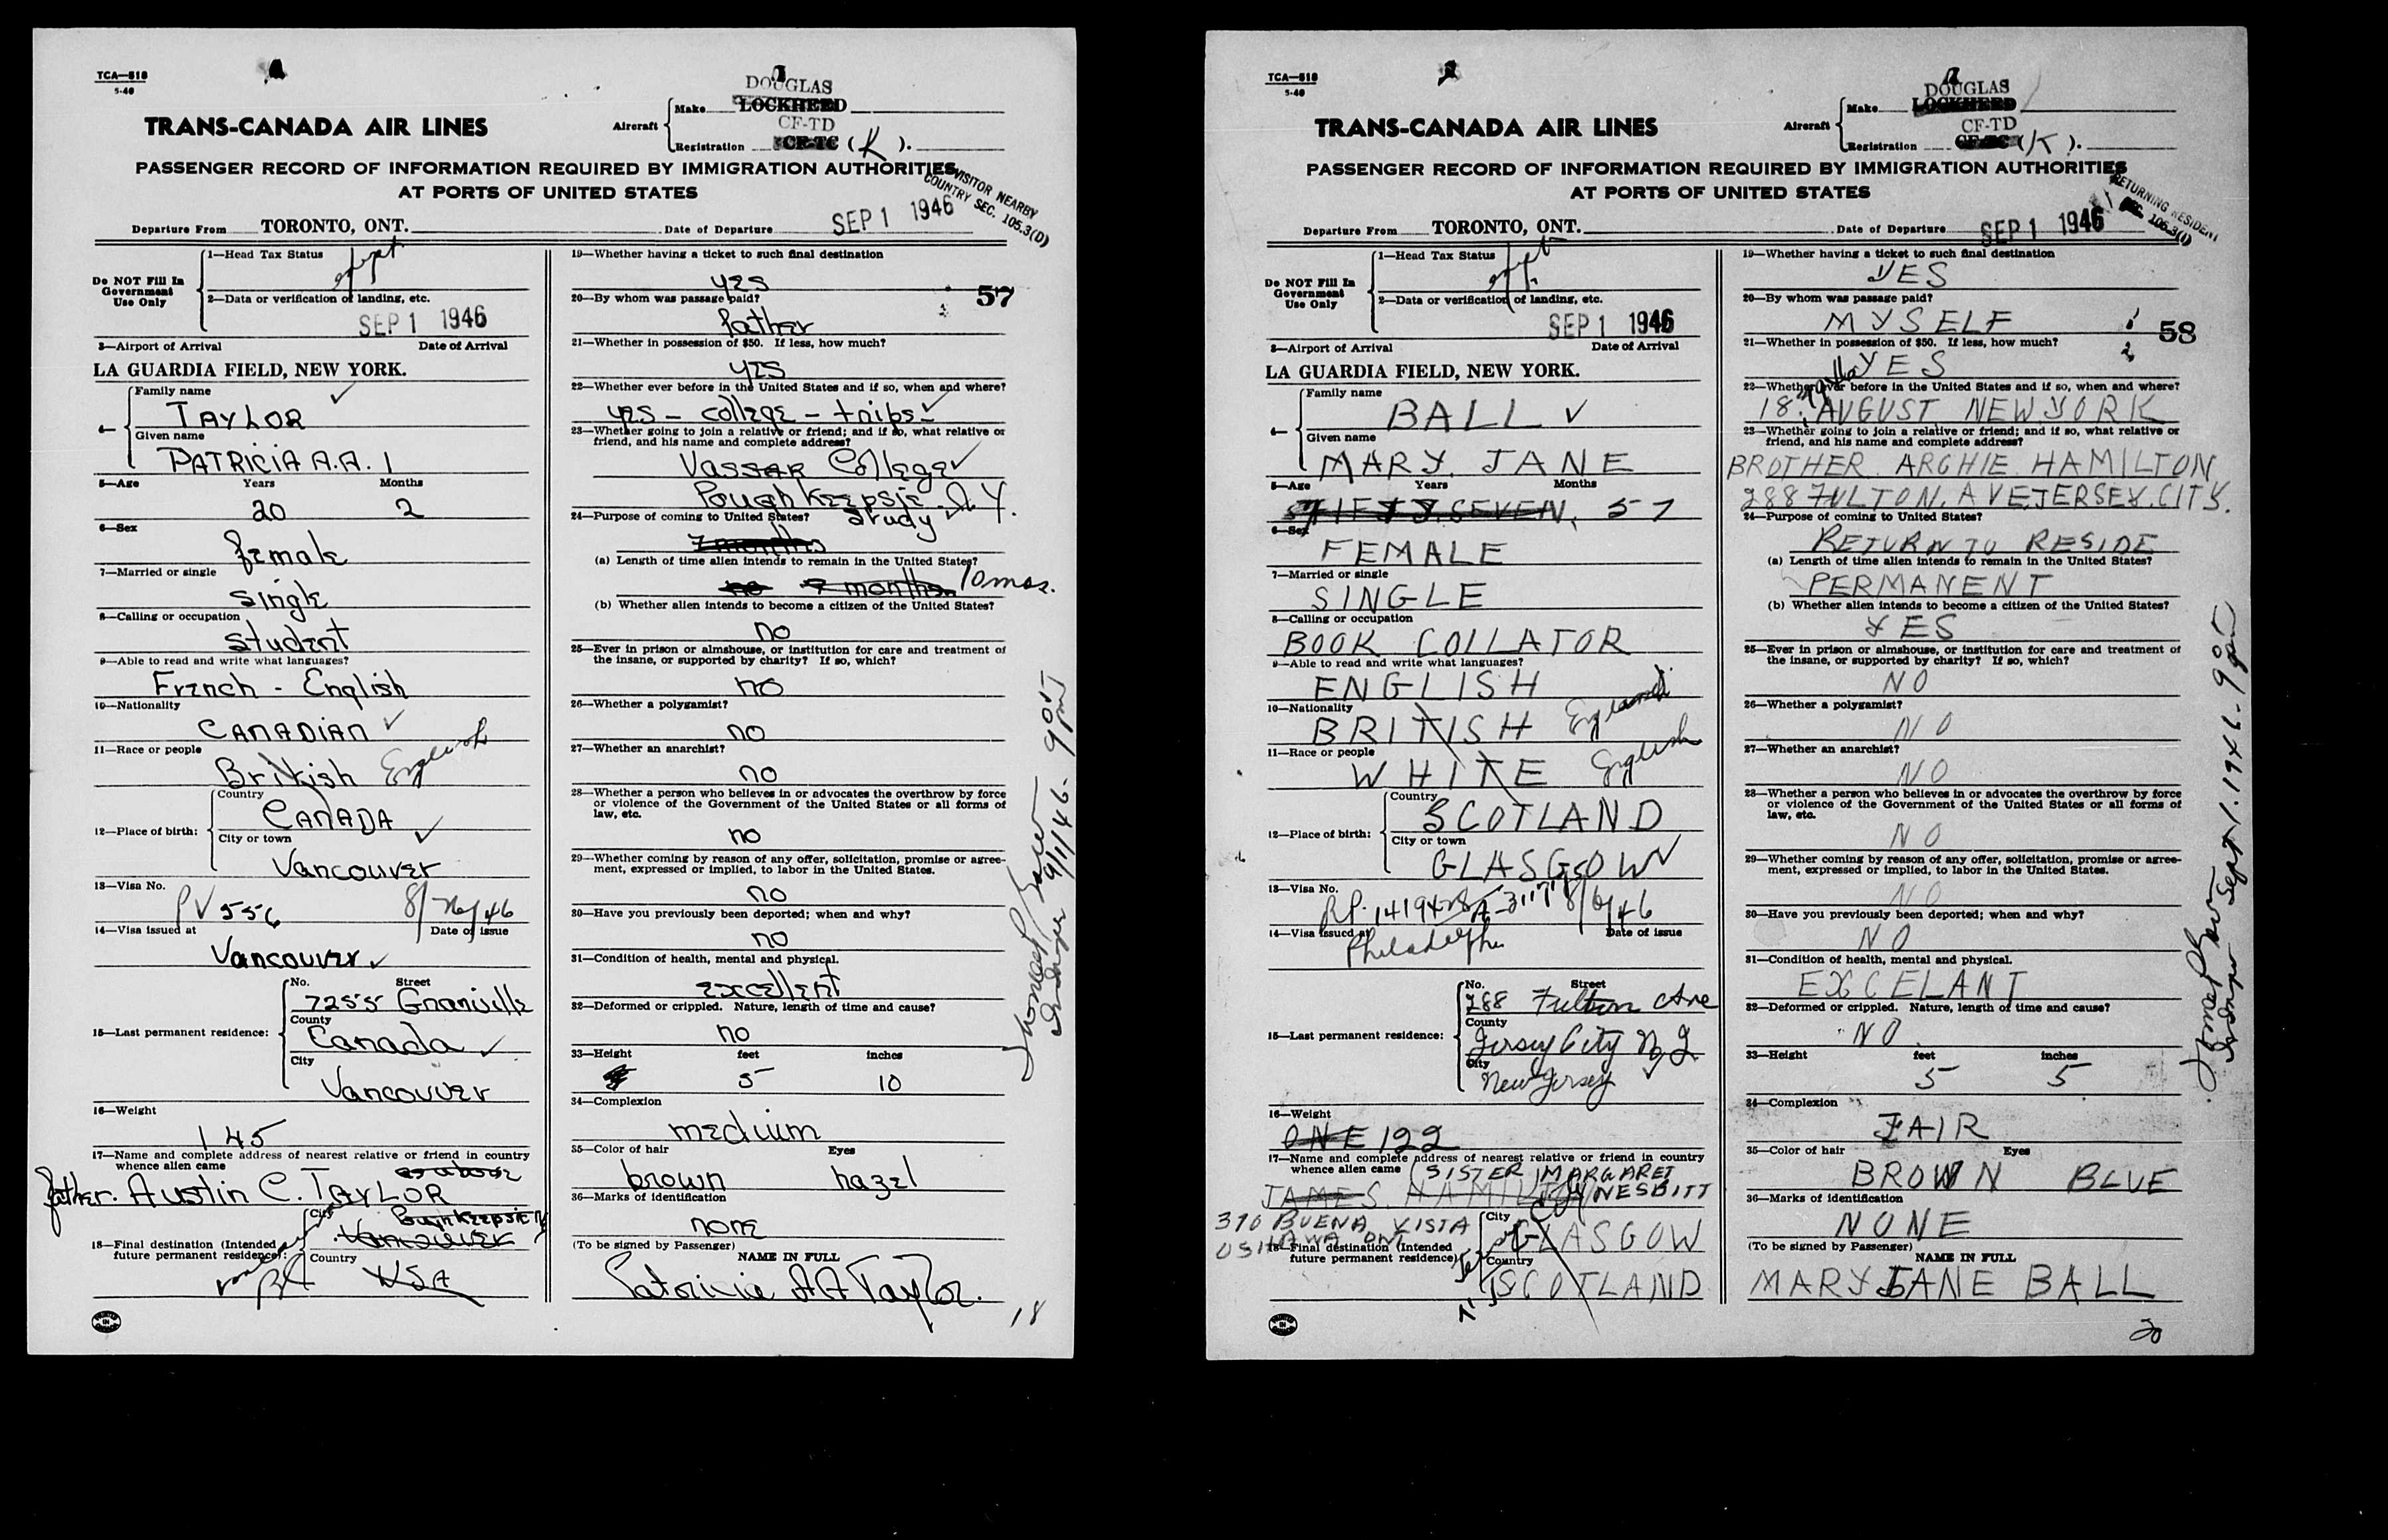 TCA—518
5-40
DOUGLAS
Aircraft
Make LOCKHEED
TRANS-CANADA AIR LINES
CF-TD
Registration CF-TC (K).
PASSENGER RECORD OF INFORMATION REQUIRED BY IMMIGRATION AUTHORITIES
AT PORTS OF UNITED STATES
VISITOR NEARBY
COUNTRY SEC. 105.3(D)
Departure From TORONTO, ONT. Date of Departure SEP 1 1946
Do NOT Fill In
Government
Use Only
1—Head Tax Status
2—Data or verification of landing, etc.
SEP 1 1946
3—Airport of Arrival Date of Arrival
LA GUARDIA FIELD, NEW YORK.
4— Family name
TAYLOR
Given name
PATRICIA A.A.
5—Age Years Months
20 2
6—Sex
female
7—Married or single
single
8—Calling or occupation
student
9—Able to read and write what languages?
French - English
10—Nationality
CANADIAN
11—Race or people
British English
12—Place of birth:
Country
CANADA
City or town
Vancouver
13—Visa No.
PV 556
14—Visa issued at Date of issue
Vancouver
15—Last permanent residence:
No. Street
7255 Granville
County
Canada
City
Vancouver
16—Weight
145
17—Name and complete address of nearest relative or friend in country
whence alien came as above
father. Austin C. TAYLOR
18—Final destination (Intended
future permanent residence):
City
Poughkeepsie NY
Vancouver
Country
USA
19—Whether having a ticket to such final destination
yes
57
20—By whom was passage paid?
father
21—Whether in possession of $50. If less, how much?
yes
22—Whether ever before in the United States and if so, when and where?
yes - college - trips
23—Whether going to join a relative or friend; and if so, what relative or
friend, and his name and complete address?
Vassar College
Poughkeepsie N.Y.
24—Purpose of coming to United States? study
7 months
(a) Length of time alien intends to remain in the United States?
no 7 months 10 mos.
(b) Whether alien intends to become a citizen of the United States?
no
25—Ever in prison or almshouse, or institution for care and treatment of
the insane, or supported by charity? If so, which?
no
26—Whether a polygamist?
no
27—Whether an anarchist?
no
28—Whether a person who believes in or advocates the overthrow by force
or violence of the Government of the United States or all forms of
law, etc.
no
29—Whether coming by reason of any offer, solicitation, promise or agree-
ment, expressed or implied, to labor in the United States.
no
30—Have you previously been deported; when and why?
no
31—Condition of health, mental and physical.
excellent
32—Deformed or crippled. Nature, length of time and cause?
no
33—Height feet inches
5 10
34—Complexion
medium
35—Color of hair Eyes
brown hazel
36—Marks of identification
none
(To be signed by Passenger)
NAME IN FULL
Patricia AA Taylor.
18
9/1/46 - 9 pm
TCA—518
5-40
DOUGLAS
Aircraft
Make LOCKHEED
TRANS-CANADA AIR LINES
CF-TD
Registration CF-TC (K).
PASSENGER RECORD OF INFORMATION REQUIRED BY IMMIGRATION AUTHORITIES
AT PORTS OF UNITED STATES
RETURNING RESIDENT
SEC. 105.3(1)
Departure From TORONTO, ONT. Date of Departure SEP 1 1946
Do NOT Fill In
Government
Use Only
1—Head Tax Status
2—Data or verification of landing, etc.
SEP 1 1946
3—Airport of Arrival Date of Arrival
LA GUARDIA FIELD, NEW YORK.
4— Family name
BALL
Given name
MARY. JANE
5—Age Years Months
FIFTY SEVEN, 57
6—Sex
FEMALE
7—Married or single
SINGLE
8—Calling or occupation
BOOK COLLATOR
9—Able to read and write what languages?
ENGLISH
10—Nationality
BRITISH England
11—Race or people
WHITE English
12—Place of birth:
Country
SCOTLAND
City or town
GLASGOW
13—Visa No.
14—Visa issued at Date of issue
Philadelphia
15—Last permanent residence:
No. Street
288 Fulton Ave
County
Jersey City N J
City
New Jersey
16—Weight
ONE 122
17—Name and complete address of nearest relative or friend in country
whence alien came (SISTER) MARGARET
JAMES HAMILTON NESBITT
390 BUENA VISTA
OSHAWA ONT
18—Final destination (Intended
future permanent residence)
City
GLASGOW
Country
SCOTLAND
19—Whether having a ticket to such final destination
YES
20—By whom was passage paid?
MYSELF
58
21—Whether in possession of $50. If less, how much?
YES
22—Whether ever before in the United States and if so, when and where?
18. AUGUST NEW YORK
23—Whether going to join a relative or friend; and if so, what relative or
friend, and his name and complete address?
BROTHER. ARCHIE. HAMILTON
288 FULTON. AVE JERSEY. CITY.
24—Purpose of coming to United States?
RETURN TO RESIDE
(a) Length of time alien intends to remain in the United States?
PERMANENT
(b) Whether alien intends to become a citizen of the United States?
YES
25—Ever in prison or almshouse, or institution for care and treatment of
the insane, or supported by charity? If so, which?
NO
26—Whether a polygamist?
NO
27—Whether an anarchist?
NO
28—Whether a person who believes in or advocates the overthrow by force
or violence of the Government of the United States or all forms of
law, etc.
NO
29—Whether coming by reason of any offer, solicitation, promise or agree-
ment, expressed or implied, to labor in the United States.
NO
30—Have you previously been deported; when and why?
NO
31—Condition of health, mental and physical.
EXCELANT
32—Deformed or crippled. Nature, length of time and cause?
NO
33—Height feet inches
5 5
34—Complexion
FAIR
35—Color of hair Eyes
BROWN BLUE
36—Marks of identification
NONE
(To be signed by Passenger)
NAME IN FULL
MARY JANE BALL
20
Sept 1. 1946 - 9 pm